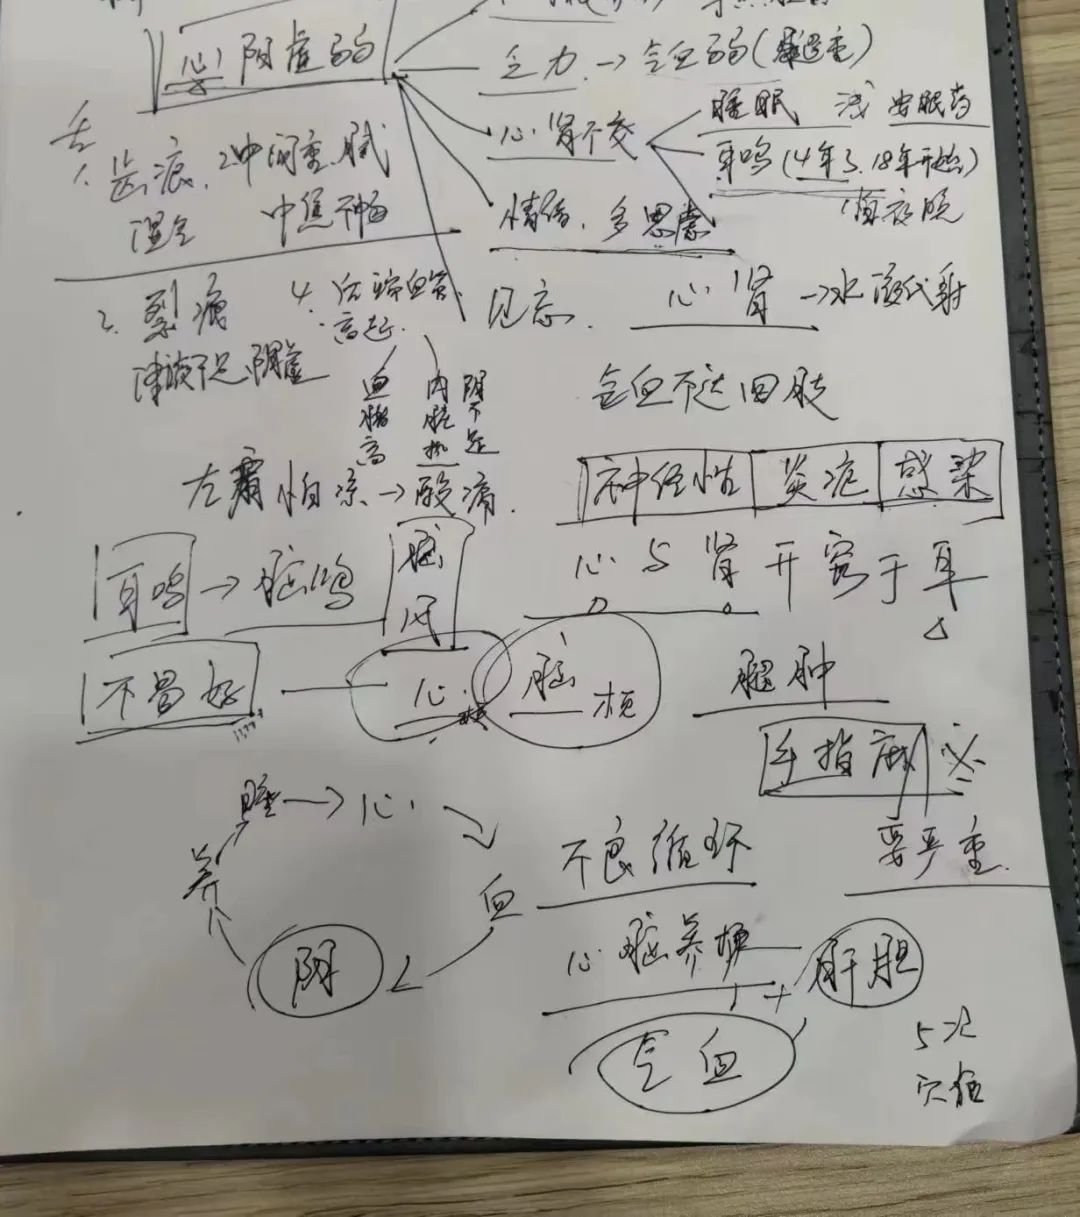 心阴虚弱
乏力→气血弱(腿过重)
舌
1、齿痕、2中间重、腻
湿气 中焦不畅
心肾不交
睡眠 浅 安眠药
耳鸣(14年了、18年开始)
值夜晚
情绪、多思虑
3、裂痕
津液不足、阴虚
4、舌
高起
血脂高
内脏热
阴不足
见忘、心肾→水液代射
气血不达四肢
左肩怕凉→酸痛
神经性 炎症 感染
耳鸣→脑鸣
脑风
心与肾开窍于耳
不曾好
心梗 脑梗
腿肿
手指麻
要严重
睡→心
血
阴
养
不良循环
心脑养梗 + 肝胆
气血
5次
穴位